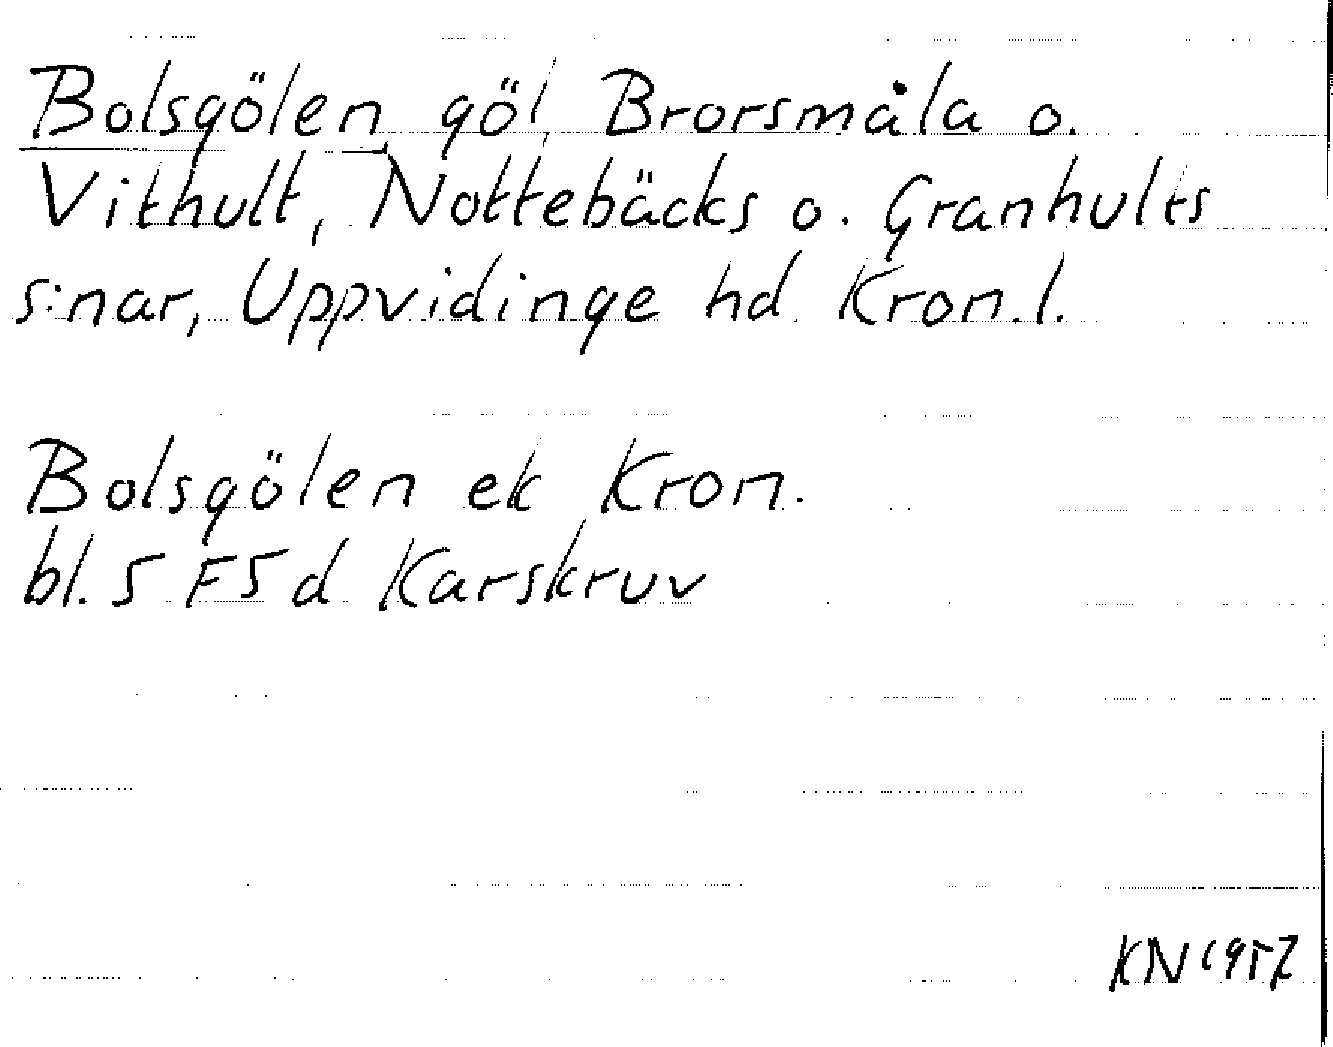 Bolsgölen, göl, Brorsmåla o.
Vithult, Nottebäcks o. Granhults
s:nar, Uppvidinge hd Kron. l.
Bolsgölen ek Kron.
bl. 5 F5d Karskruv
KN 1957